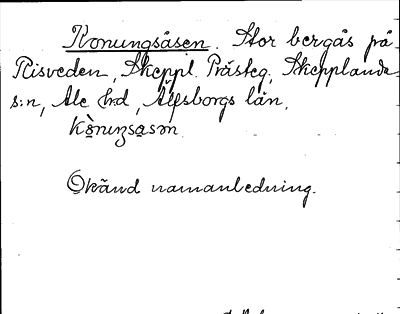 Konungsåsen. Stor bergås på
Risveden, Skeppl. Prästeg., Skepplanda
s:n, Ale hd, Älfsborgs län.
Okänd namanledning.